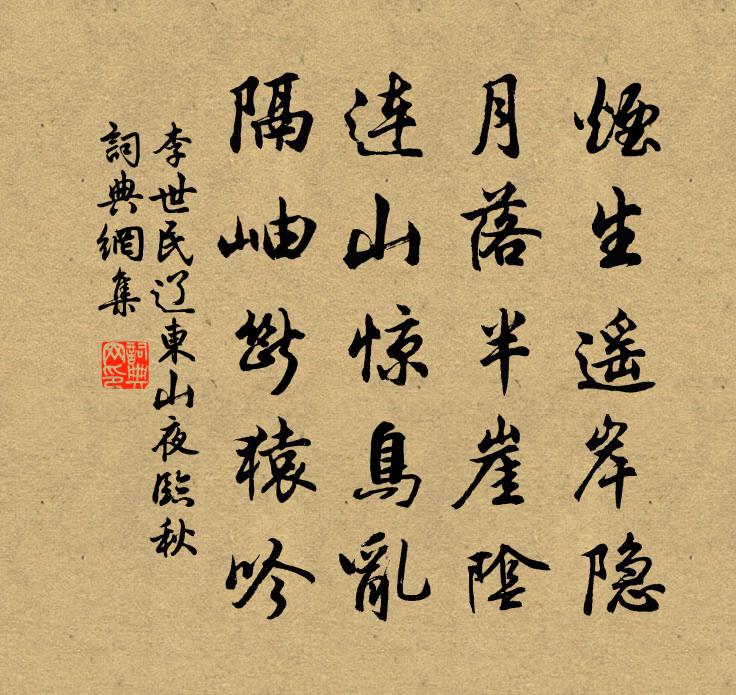 煙生遥岸隐
月落半崖陰
连山惊鳥亂
隔岫斷猿吟
李世民辽東山夜臨秋
詞典網集
詞典网印